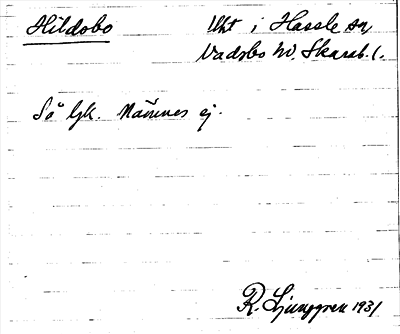 Hildobo
Uht i Hassle sn
Vadsbo hd. Skarab. l.
Så Gk. Nämnes ej.
R. Ljunggren 1931